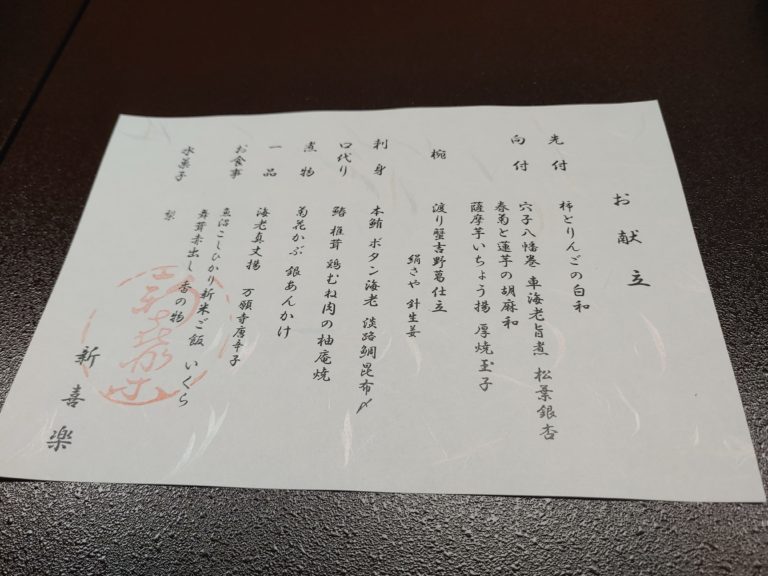 お献立
先付 柿とりんごの白和
向付 穴子八幡巻 車海老旨煮 松葉銀杏
春菊と蓮芋の胡麻和
薩摩芋いちょう揚 厚焼玉子
椀 渡り蟹吉野葛仕立
絹さや 針生姜
刺身 本鮪 ボタン海老 淡路鯛昆布〆
口代り 鮨 椎茸 鶏むね肉の柚庵焼
煮物 菊花かぶ 銀あんかけ
一品 海老真丈揚 万願寺唐辛子
お食事 魚沼こしひかり新米ご飯 いくら
舞茸赤出し 香の物
水菓子 梨
新喜楽
新喜楽